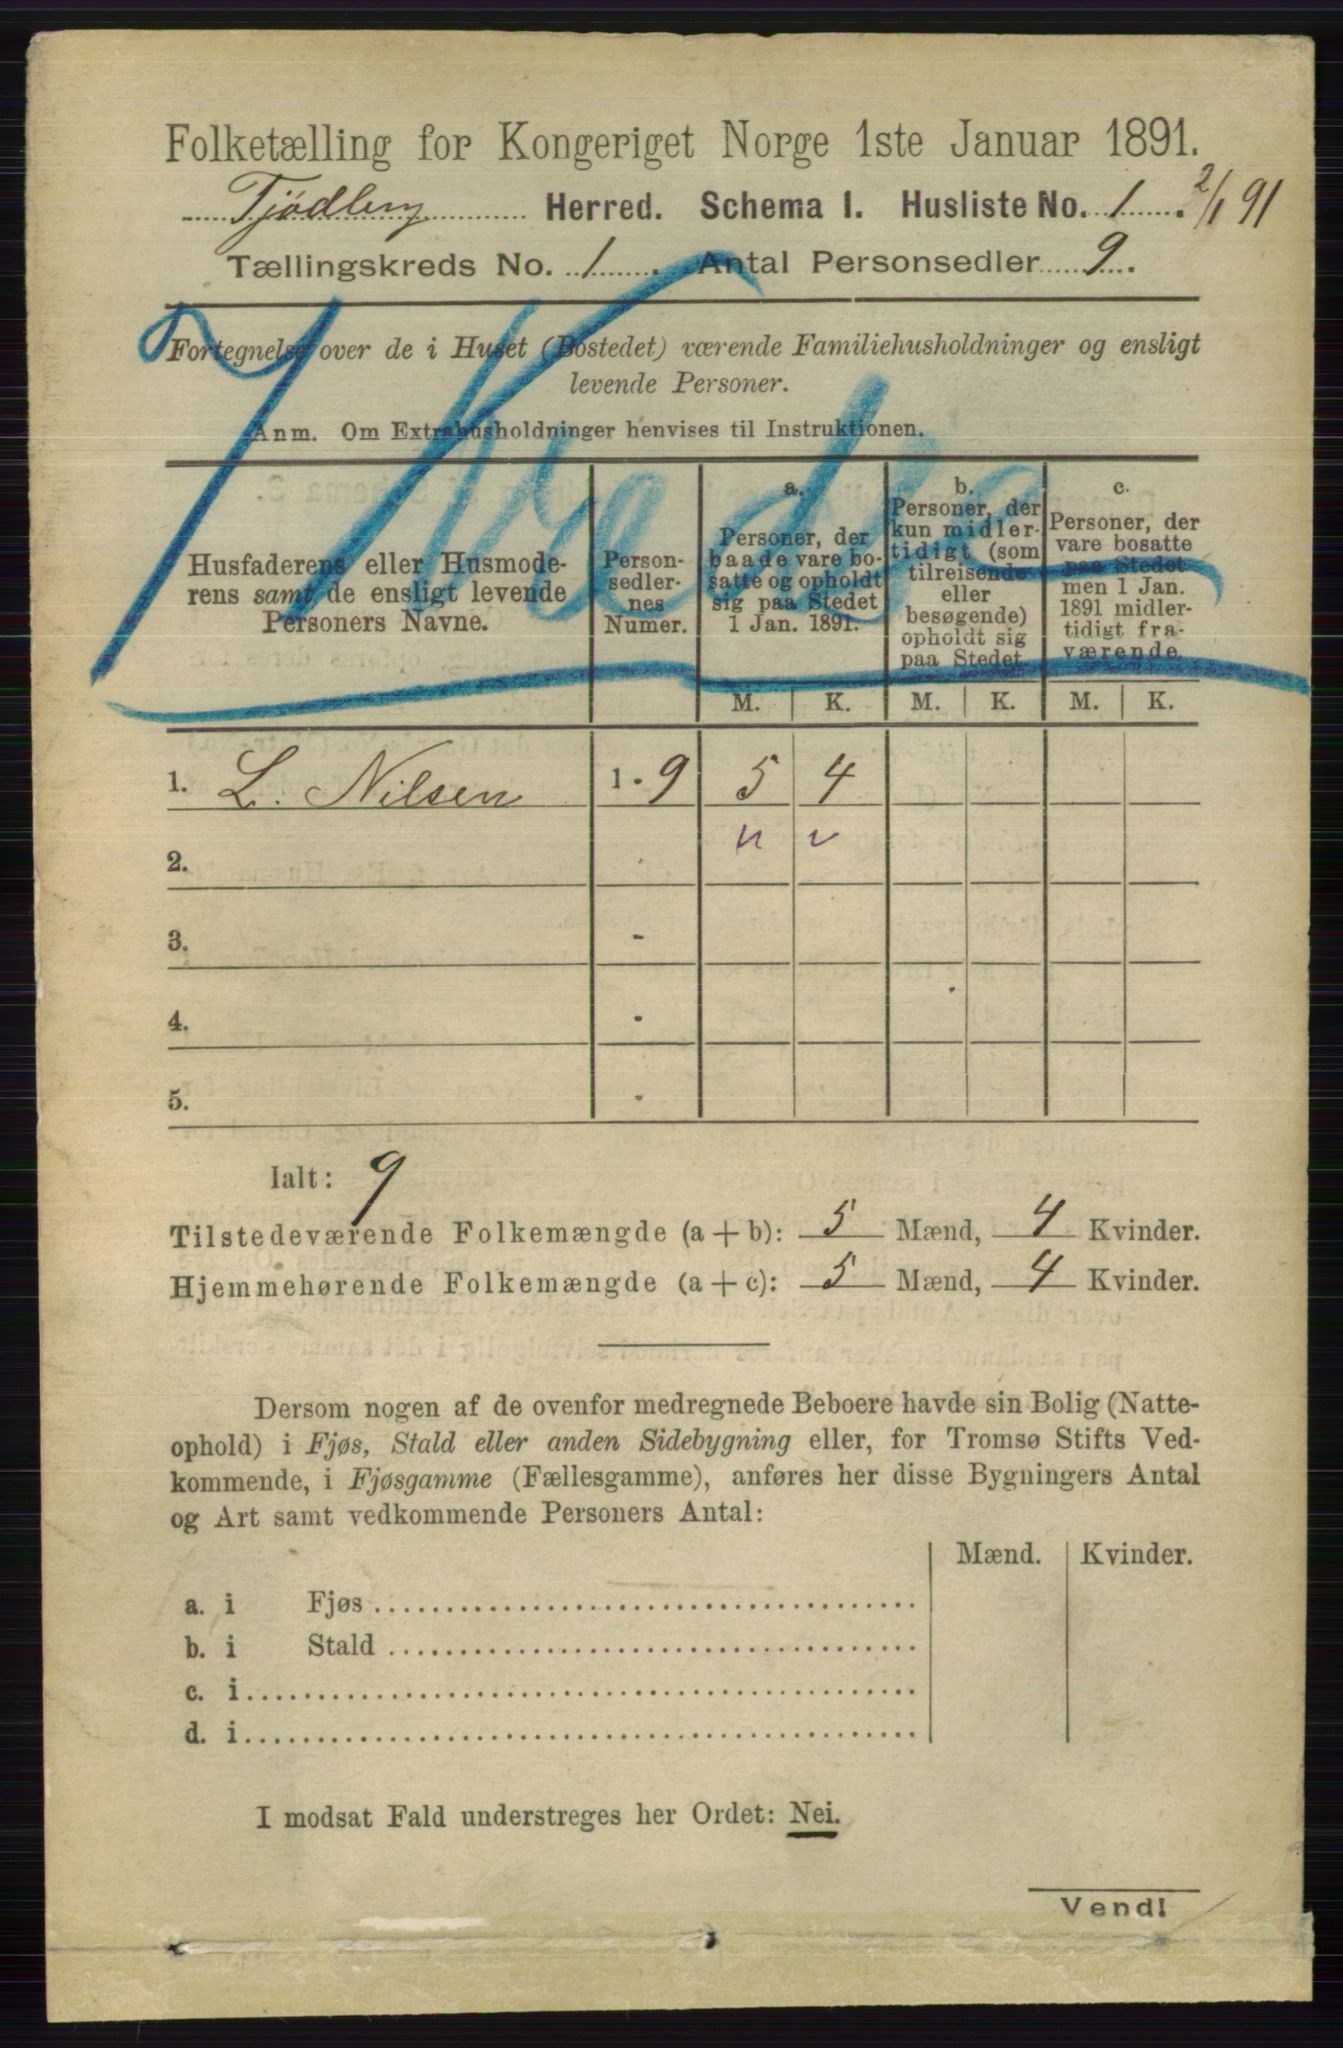 Folketælling for Kongeriget Norge 1ste Januar 1891.
Tjödling Herred. Schema I. Husliste No. 1. 2/1 91
Tællingskreds No. 1. Antal Personsedler 9.
Fortegnelse over de i Huset (Bostedet) værende Familiehusholdninger og ensligt
levende Personer.
Anm. Om Extrahusholdninger henvises til Instruktionen.
1 Kreds
Husfaderens eller Husmode-
rens samt de ensligt levende
Personers Navne.
Person-
sedler-
nes
Numer.
a.
Personer, der
baade vare bo-
satte og opholdt
sig paa Stedet
1 Jan. 1891.
b.
Personer, der
kun midler-
tidigt (som
tilreisende
eller
besøgende)
opholdt sig
paa Stedet.
c.
Personer, der
vare bosatte
paa Stedet
men 1 Jan.
1891 midler-
tidigt fra-
værende.
M. K. M. K. M. K.
1. L. Nilsen 1 - 9 5 4
2.
3. -
4. -
5. -
Ialt: 9
Tilstedeværende Folkemængde (a + b): 5 Mænd, 4 Kvinder.
Hjemmehørende Folkemængde (a + c): 5 Mænd, 4 Kvinder.
Dersom nogen af de ovenfor medregnede Beboere havde sin Bolig (Natte-
ophold) i Fjøs, Stald eller anden Sidebygning eller, for Tromsø Stifts Ved-
kommende, i Fjøsgamme (Fællesgamme), anføres her disse Bygningers Antal
og Art samt vedkommende Personers Antal:
Mænd. Kvinder.
a. i Fjøs
b. i Stald
c. i
d. i
I modsat Fald understreges her Ordet: Nei.
Vend!